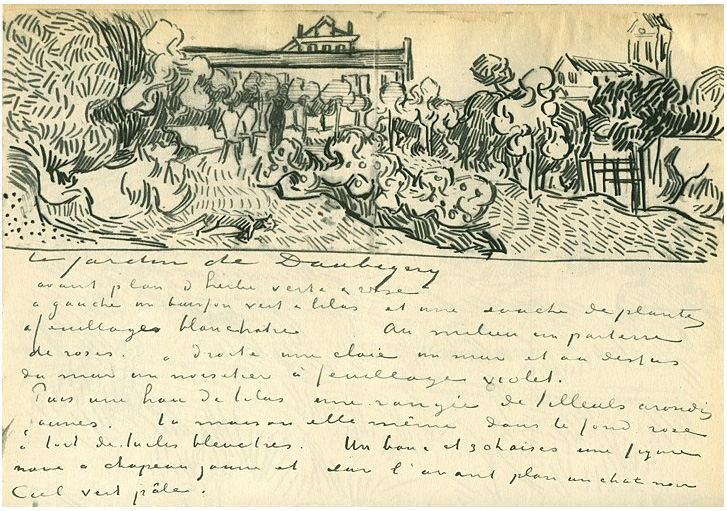 Le jardin de Daubigny
avant plan d'herbe verte & rose
à gauche un buisson vert & lilas et une souche de plantes
à feuillages blanchatre. Au milieu un parterre
de roses. à droite une claie un mur et au dessus
du mur un noisetier à feuillage violet.
Puis une haie de lilas une rangée de tilleuls arondis
jaunes. La maison elle même dans le fond rose
à toit de tuiles bleuatres. Un banc et 3 chaises une figure
noire à chapeau jaune et sur l'avant plan un chat noir
Ciel vert pâle.